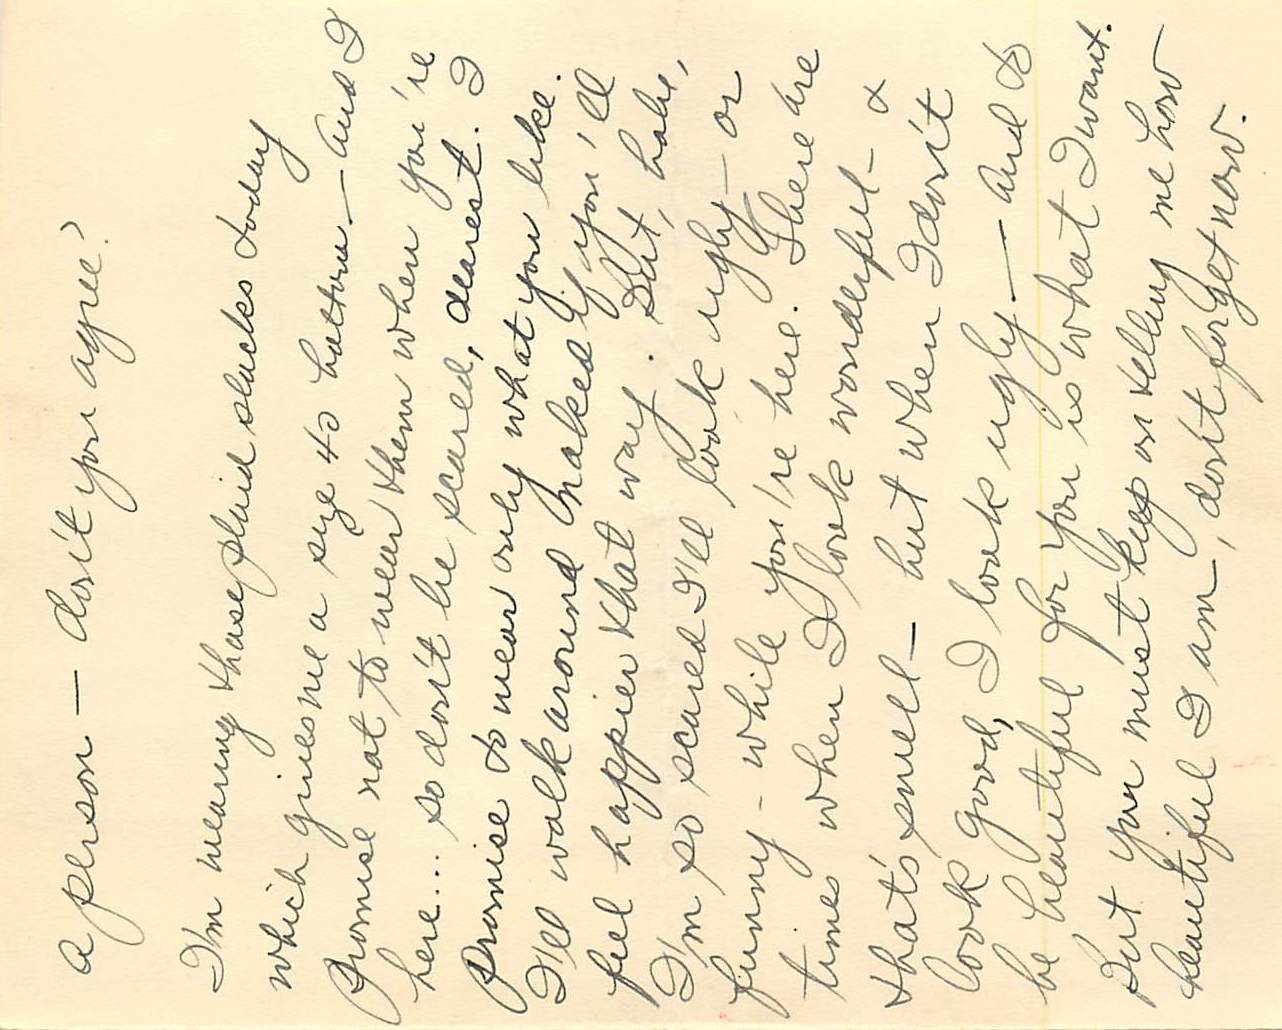 a person — don't you agree?
I'm wearing those plaid slacks today
which gives me a size 40 bottom — and I
promise not to wear them when you're
here... so don't be scared, dearest. I
promise to wear only what you like.
I'll walk around naked if you'll
feel happier that way. But, babe,
I'm so scared I'll look ugly — or
funny - while you're here. There are
times when I look wonderful - &
that's swell - but when I don't
look good, I look ugly — and to
be beautiful for you is what I want.
But you must keep on telling me how
beautiful I am, don't forget now.